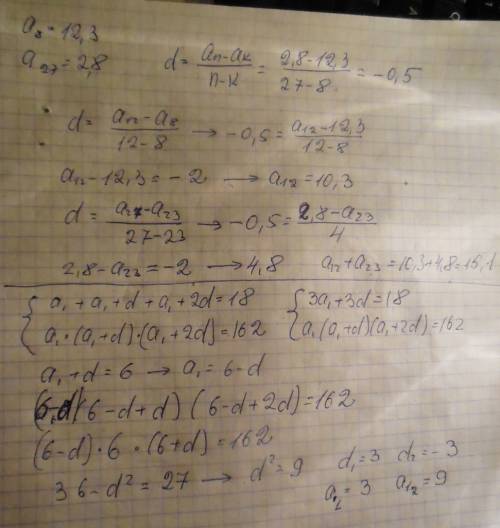 a₈ = 12,3
a₂₇ = 2,8 d = (aₙ - aₖ)/(n - k) = (2,8 - 12,3)/(27 - 8) = -0,5
d = (a₁₂ - a₈)/(12 - 8) → -0,5 = (a₁₂ - 12,3)/(12 - 8)
a₁₂ - 12,3 = -2 → a₁₂ = 10,3
d = (a₂₇ - a₂₃)/(27 - 23) → -0,5 = (2,8 - a₂₃)/4
2,8 - a₂₃ = -2 → 4,8 a₁₂ + a₂₃ = 10,3 + 4,8 = 15,1
{ a₁ + a₁ + d + a₁ + 2d = 18 { 3a₁ + 3d = 18
a₁·(a₁+d)·(a₁+2d) = 162 a₁(a₁+d)(a₁+2d) = 162
a₁ + d = 6 → a₁ = 6 - d
(6-d)(6-d+d)(6-d+2d) = 162
(6-d)·6·(6+d) = 162
36 - d² = 27 → d² = 9 d₁ = 3 d₂ = -3
a₁ = 3 a₁₂ = 9